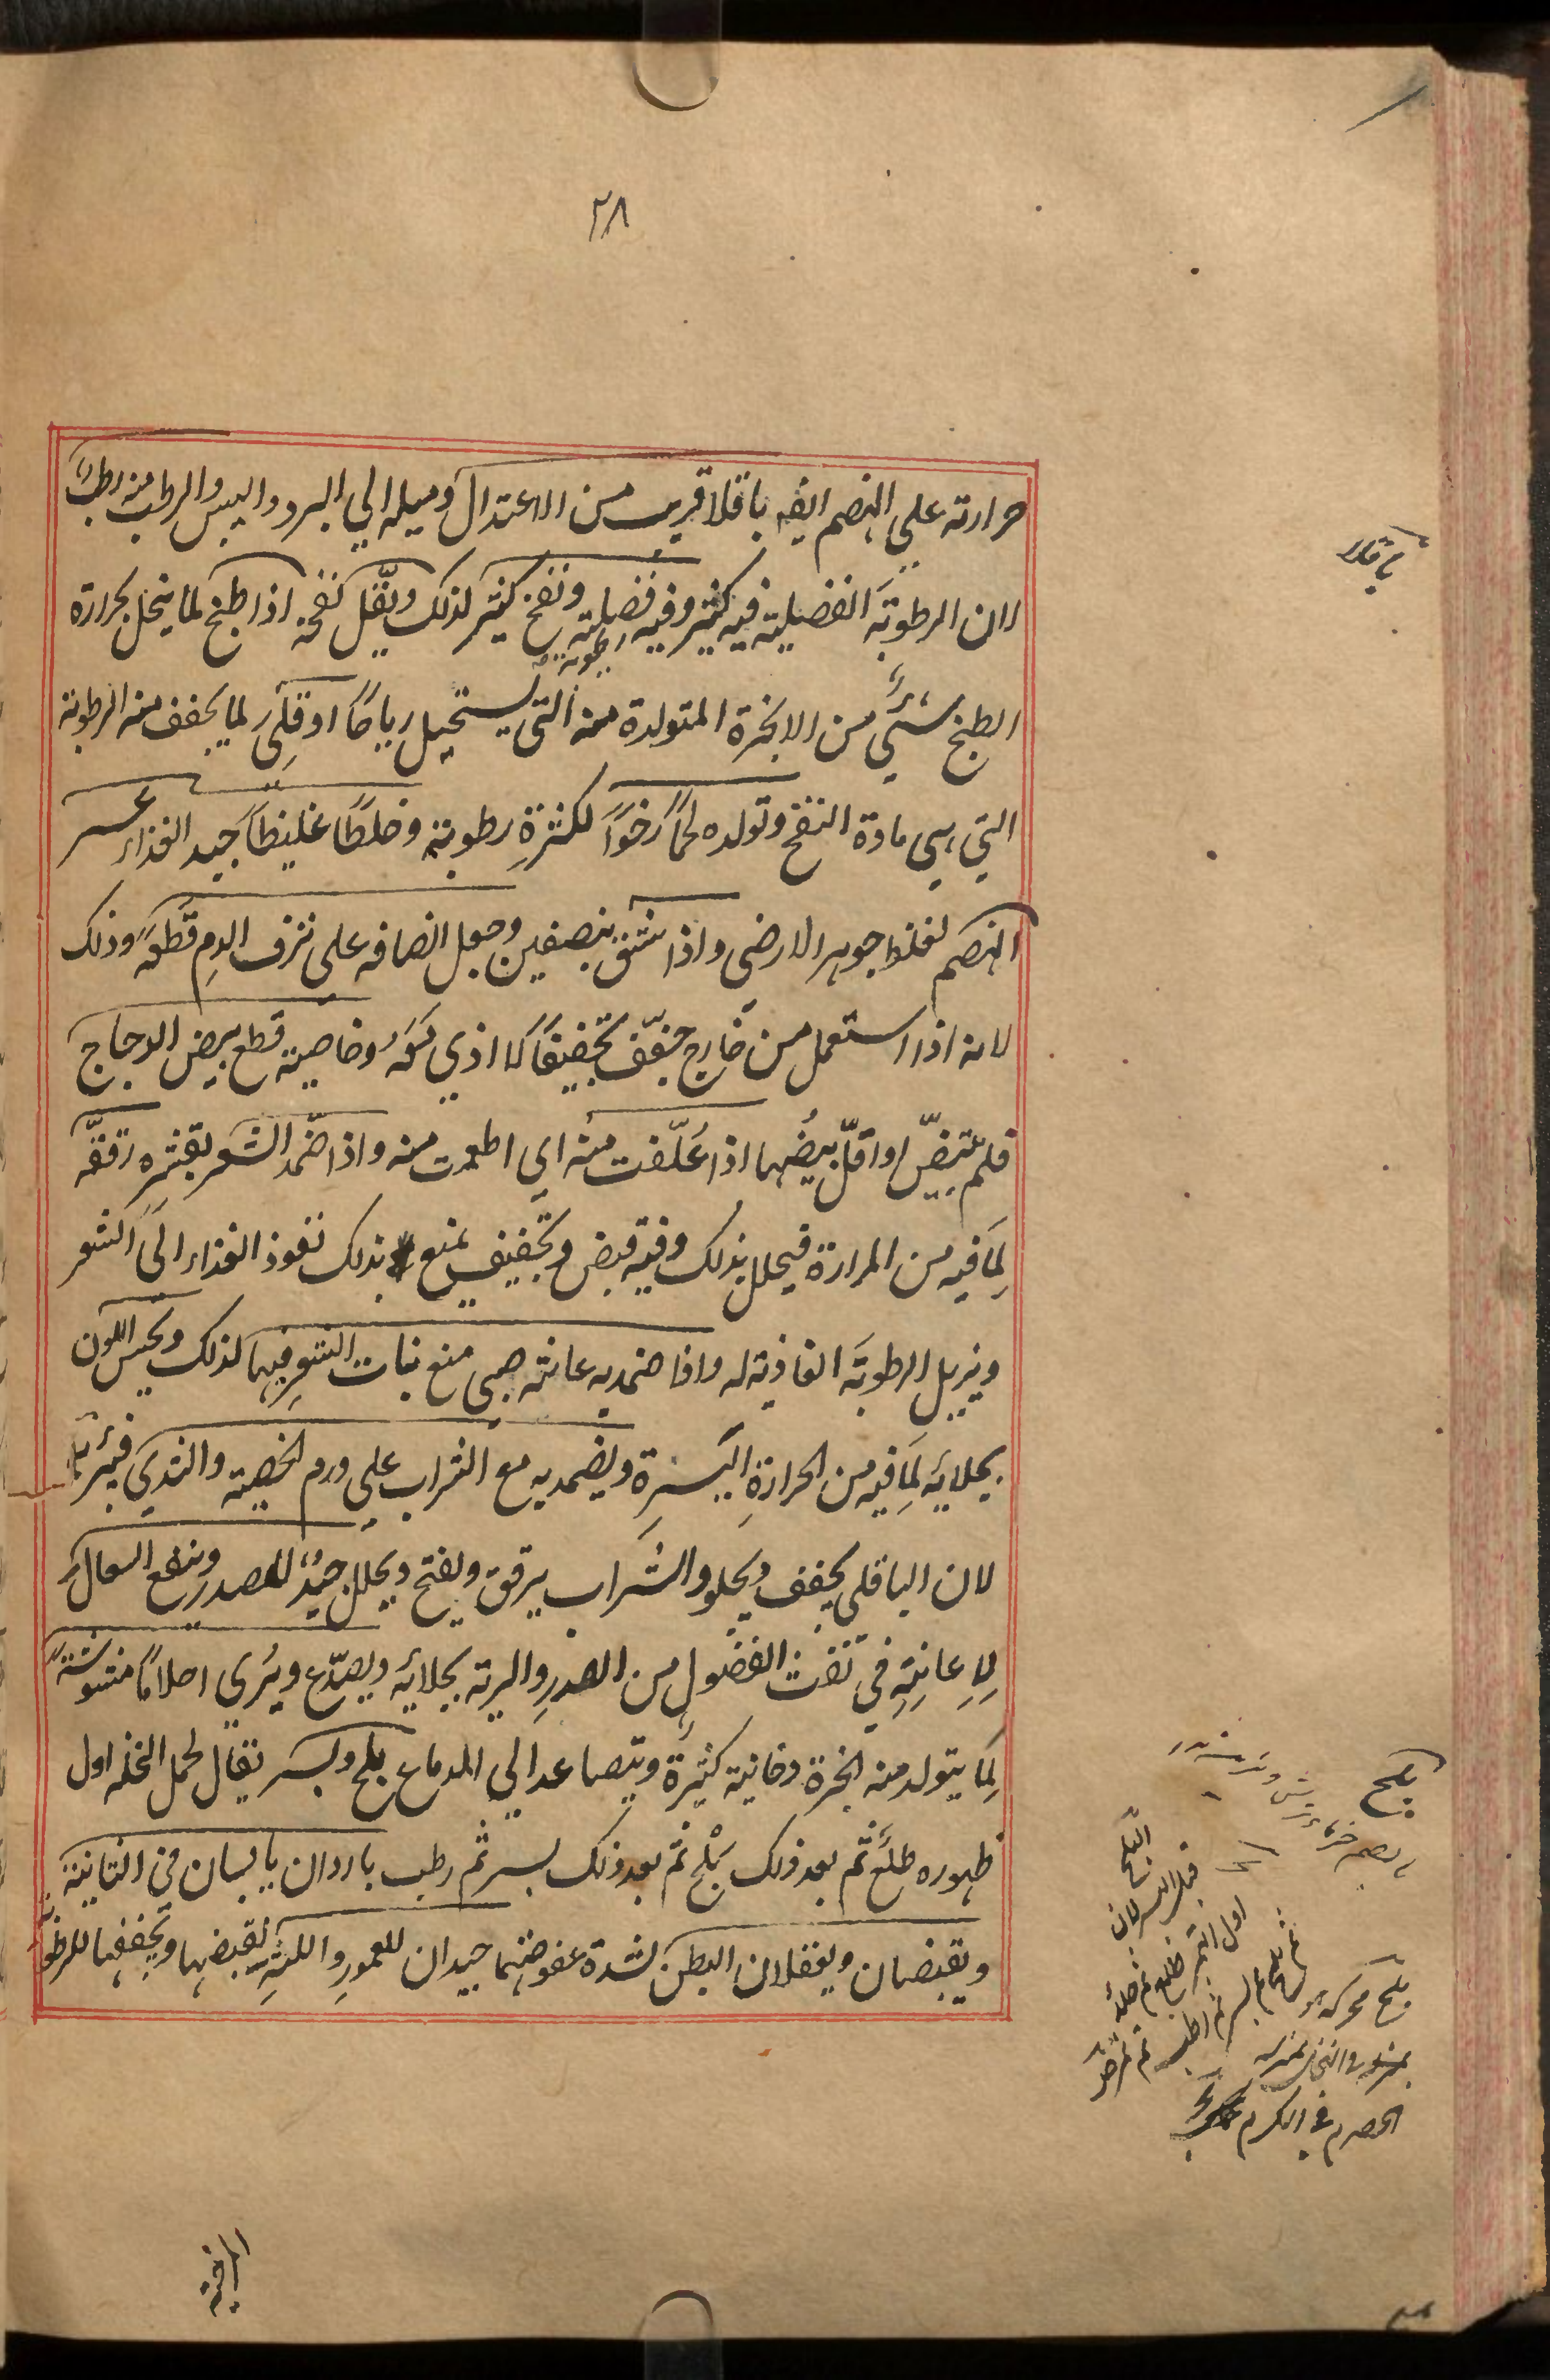 ٢٨
حرارته علي الهضم ايضه باقلا قريب من الاعتدال وميله الي البرد واليبس والرطب منه ارطب
لان الرطوبة الفضيلية فيه كثير وفيه فضلية ونفخ كثير لذلك ويقل نفخه اذا طبخ لما يتحلل بحرارة
رطوبة
الطبخ شئي من الابخرة المتولدة منه التي يستحيل رياحًا او قلي لما يخفف منه الرطوبة
التي هي مادة النفخ وتولده لحمًا رخوًا لكثرةِ رطوبته وخلطًا غليظًا جيد الغذاء عسر
الهضم لغلظ جوهر الارضي واذا شق بنصفين وجعل انصافه علي نزف الدم قطعه وذلك
لانه اذا استعمل من خارج جفّف تجفيفًا لا اذي معه وخاصيته قطع بيض الدجاج
فلم تبيضّ او اقلّ بيضُها اذا عُلّفت منه اي اطعمت منه واذا ضمّد الشعر بقشره رققّه
لِمَا فيه من المرارة فيحلل بذلك وفيه قبض وتجفيف يمنع بذلك نفوذ الغذاء الي الشعر
ويزيل الرطوبة الغاذية له واذا ضمد به عانة صبي منع نبات الشعر فيها لذلك ويحسن اللون
بجلائه لِمَا فيه من الحرارةِ اليسيرة ويضمد به مع الشراب علي ورم الخصية والثدي فيبرئه
لان الباقلي يجفف ويجلو والشراب يرقق ويفتح ويحلل جيدٌ للصدر وينفع السعال
لِاِعانتِه في نفث الفضول من الصدر والرية بجلائه ويصدّع ويُري احلامًا مشوشةً
لِمَا يتولد منه ابخرة دخانية كثيرة ويتصاعد الي الدماغ بلح وبسر يقال لحمل النخله اول
ظهوره طلع ثم بعد ذلك بَلْح ثم بعد ذلك بسر ثم رطب باردان يابسان في الثانية
ويقبضان ويعقلان البطن لشدة عفوصتهما جيدان للعمورِ واللثةِ لقبضها وتجفيفها للرطوبة
المرخية
باقلا
بلح
البلح
قبل البسر لان
اول التمر طلع ثم خلال
ثم بلح ثم بسر ثم رطب ثم تمر
بلح محركة
الحصرم في الكرم